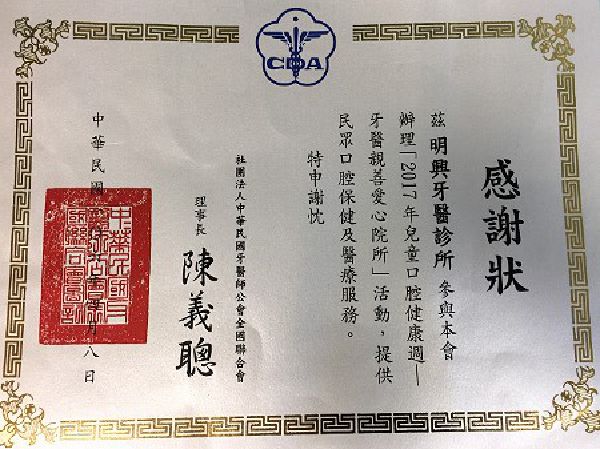 CDA
感謝狀
茲 明興牙醫診所 參與本會
辦理「2017年兒童口腔健康週—
牙醫親善愛心院所」活動，提供
民眾口腔保健及醫療服務。
特申謝忱
社團法人中華民國牙醫師公會全國聯合會
理事長 陳義聰
中華民國
月八日